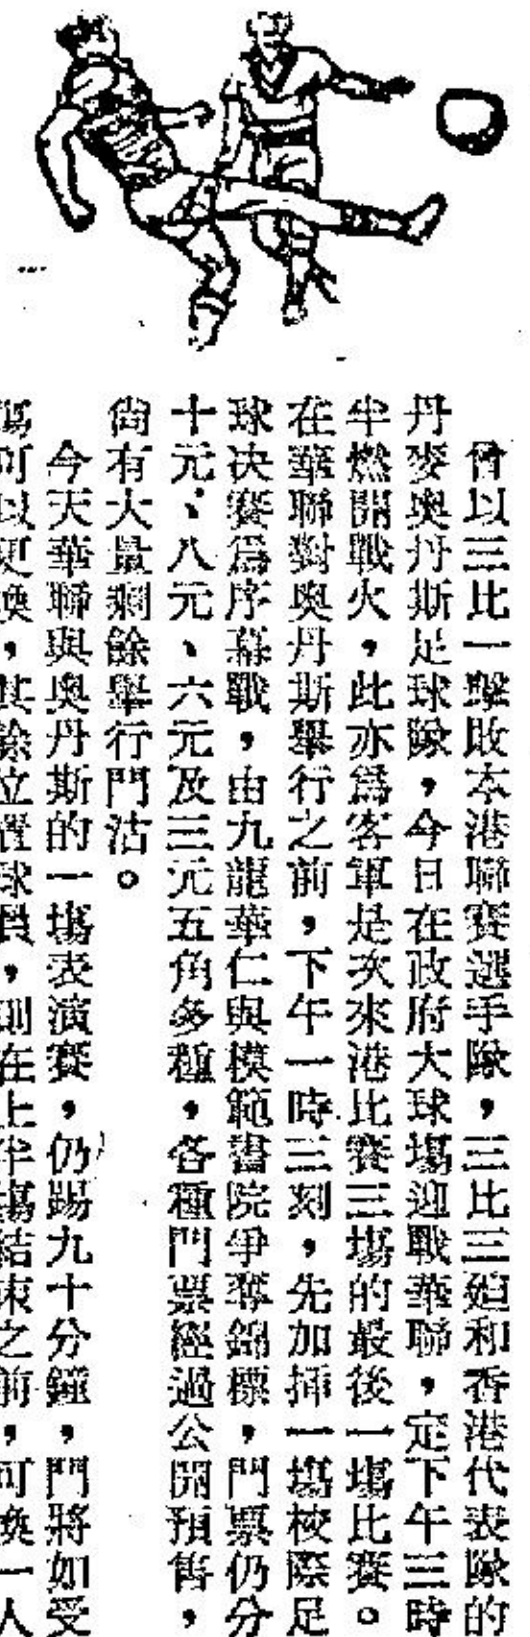 曾以三比一擊敗本港聯賽選手隊，三比三廹和香港代表隊的
丹麥奧丹斯足球隊，今日在政府大球塲迎戰華聯，定下午三時
半燃開戰火，此亦爲客軍是次來港比賽三塲的最後一塲比賽。
在華聯對奧丹斯舉行之前，下午一時三刻，先加揷一塲校際足
球决賽爲序幕戰，由九龍華仁與模範書院爭奪錦標，門票仍分
十元、八元、六元及三元五角多種，各種門票經過公開預售，
尙有大量剩餘舉行門沽。
今天華聯與奧丹斯的一塲表演賽，仍踢九十分鐘，門將如受
傷可以更換，其餘位置球員，則在上半塲結束之前，可換一人